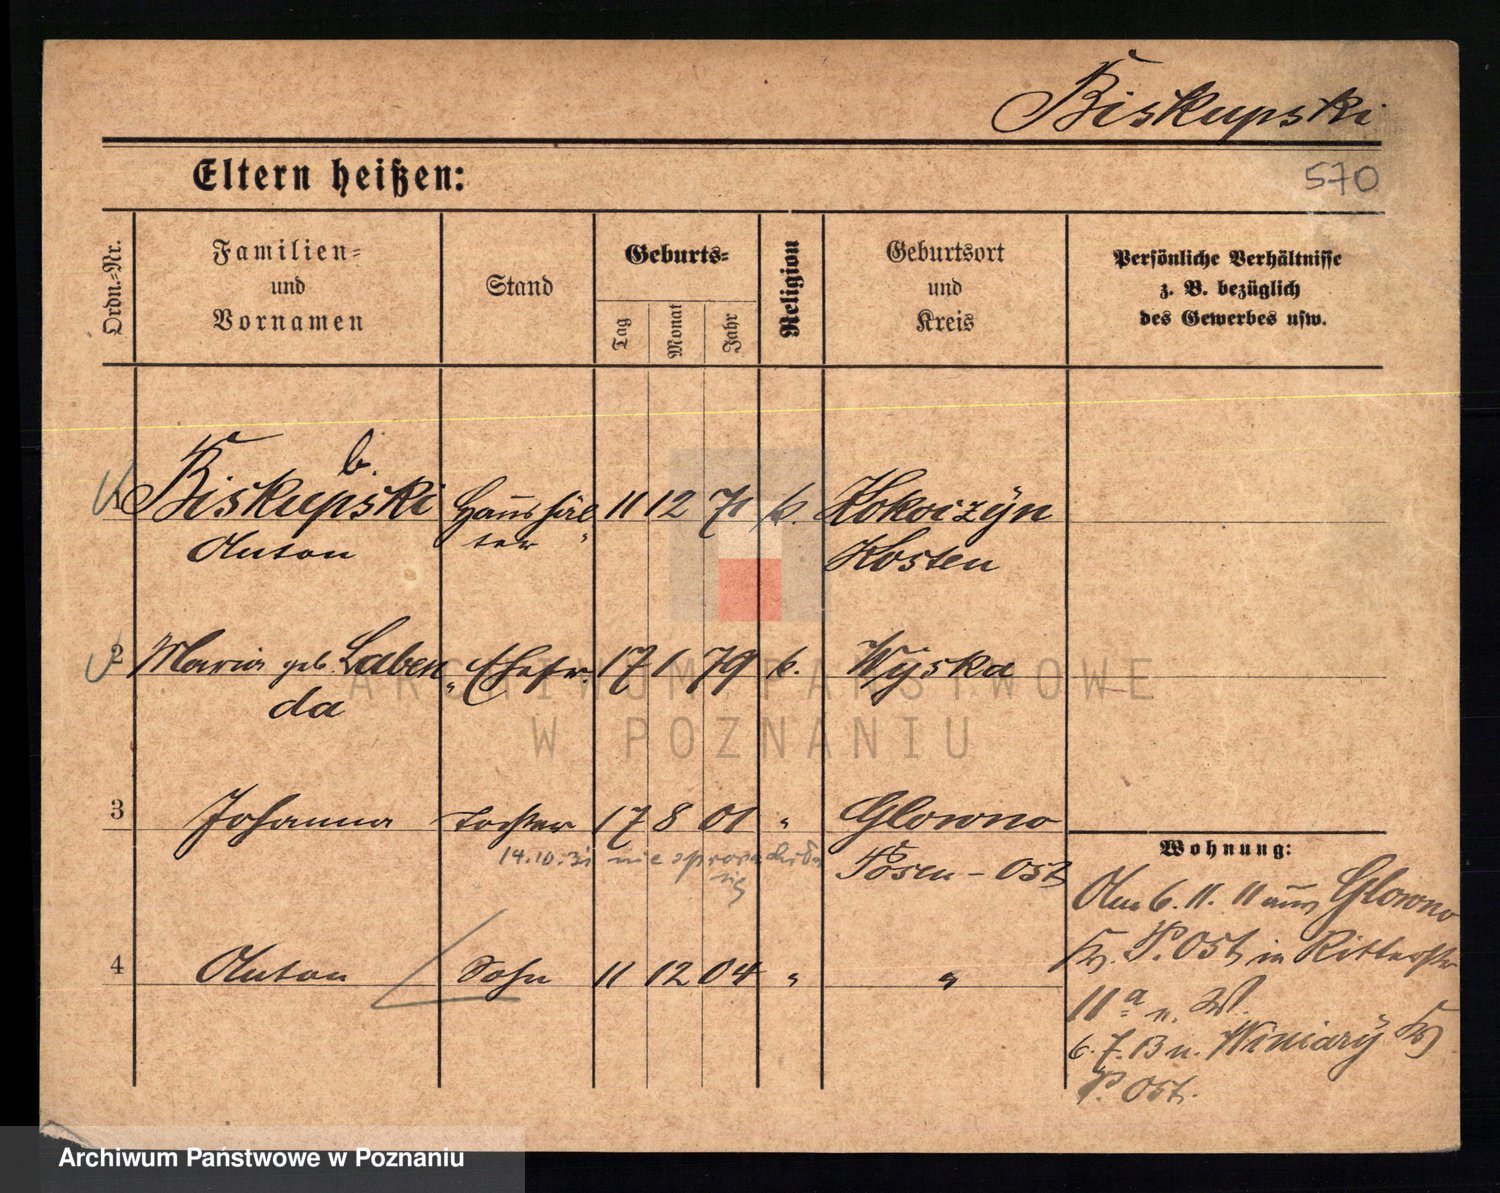 Biskupski
570
Eltern heißen:
Ordn.-Nr.
Familien- und Vornamen
Stand
Geburts-
Tag
Monat
Jahr
Religion
Geburtsort und Kreis
Persönliche Verhältnisse z. B. bezüglich des Gewerbes usw.
b.
Biskupski Haushäl- 11 12 71 k. Kokorzyn
Anton ter Kosten
2 Maria geb. Laben- Ehefr. 17 1 79 k. Wyska
da
3 Johanna Tochter 17 8 01 " Glowno
14.10.31 nie sprowadziła się
Posen-Ost
4 Anton Sohn 11 12 04 " "
Wohnung:
Am 6.11.11 aus Glowno
Kr. P. Ost in Ritterstr
11a n. W.
6.7.13 n. Winiary Kr
P. Ost.
ARCHIWUM PAŃSTWOWE
W POZNANIU
Archiwum Państwowe w Poznaniu